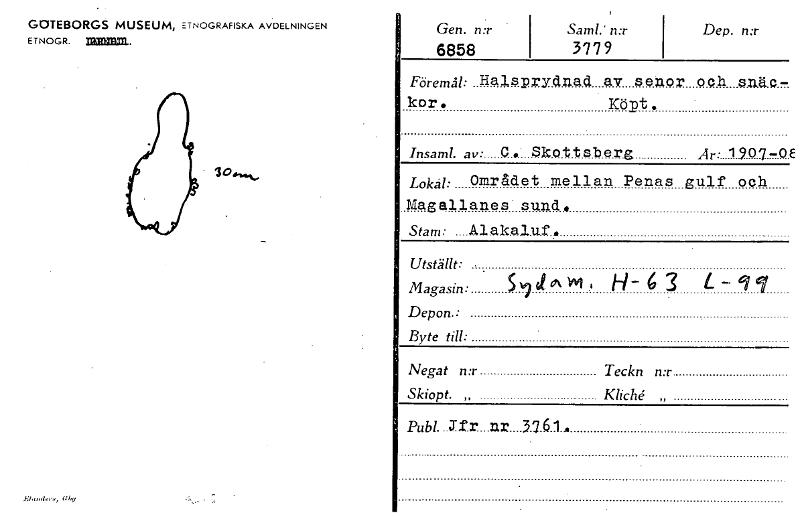 GÖTEBORGS MUSEUM, ETNOGRAFISKA AVDELNINGEN
ETNOGR.
30 cm
Elanders, Gbg
Gen. n:r Saml. n:r Dep. n:r
6858 3779
Föremål: Halsprydnad av senor och snäc-
kor. Köpt.
Insaml. av: C. Skottsberg År: 1907-08
Lokal: Området mellan Penas gulf och
Magallanes sund.
Stam: Alakaluf.
Utställt:
Magasin: Sydam. H-63 L-99
Depon.:
Byte till:
Negat n:r Teckn n:r
Skiopt. „ Kliché „
Publ. Jfr nr 3761.